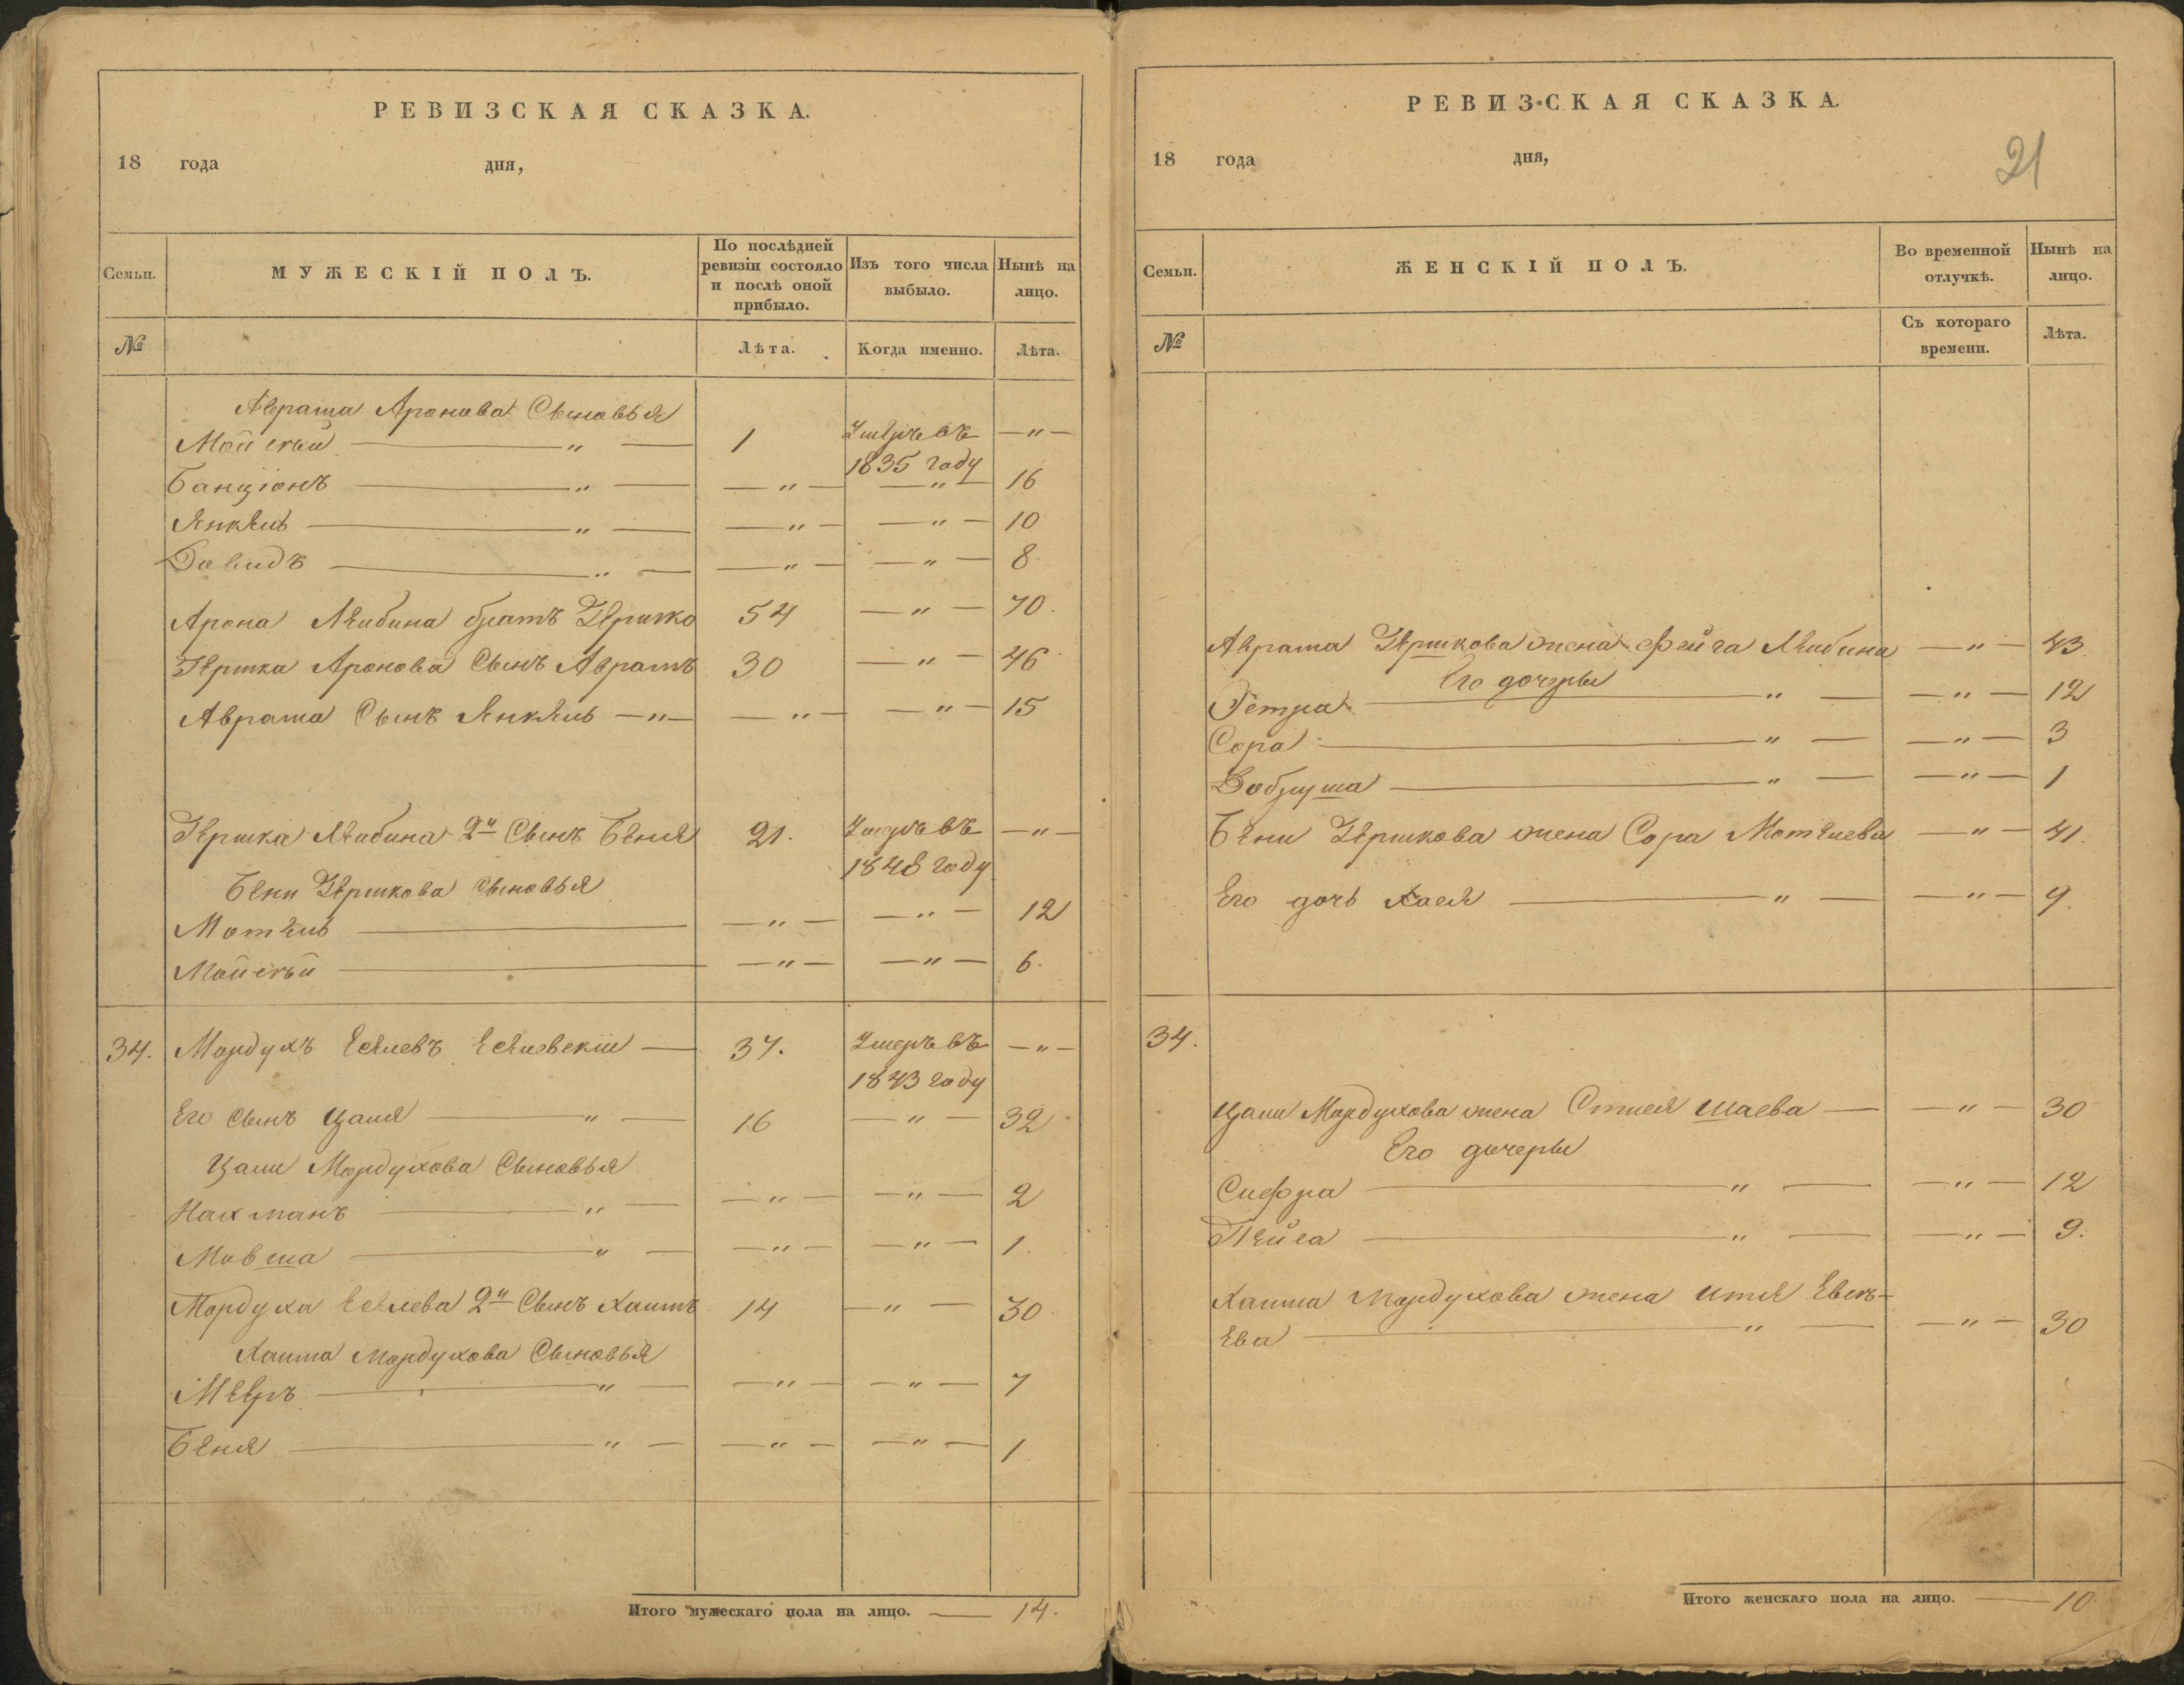 РЕВИЗСКАЯ СКАЗКА.
18 года дня,
Семьи.
МУЖЕСКІЙ ПОЛЪ.
По послѣдней ревизіи состояло и послѣ оной прибыло.
Изъ того числа выбыло.
Нынѣ на лицо.
№
Лѣта.
Когда именно.
Лѣта.
Аврама Аронова Сыновья
Мойсей — " — 1 Умеръ въ — " —
1835 году
Банціонъ — " — — " — — " — 16
Янкель — " — — " — — " — 10
Довидъ — " — — " — — " — 8.
Арона Лейбина братъ Гершко 54 — " — 70.
Гершка Аронова Сынъ Аврамъ 30 — " — 46
Аврама Сынъ Янкель — " — — " — — " — 15
Гершка Лейбина 2й Сынъ Беня 21. Умеръ въ — " —
1848 году
Бени Гершкова Сыновья
Мотель — — " — — " — 12
Мойсей — — " — — " — 6.
34. Мордухъ Еселевъ — 37. Умеръ въ — " —
1843 году
Его Сынъ Цаля — " — 16 — " — 32
Цали Мордухова Сыновья
Нахманъ — " — — " — — " — 2
Мовша — " — — " — — " — 1.
Мордуха Еселева 2й Сынъ Хаимъ 14 — " — 30.
Хаима Мордухова Сыновья
Мееръ — " — — " — — " — 7
Беня — " — — " — — " — 1
Итого мужескаго пола на лицо. — 14.
РЕВИЗСКАЯ СКАЗКА.
21
18 года дня,
Семьи.
ЖЕНСКІЙ ПОЛЪ.
Во временной отлучкѣ.
Нынѣ на лицо.
№
Съ котораго времени.
Лѣта.
Аврама Гершкова жена Фейга Лейбина — " — 43
Его дочеры
— " — — " — 12
Сора — " — — " — 3
Добруша — " — — " — 1
Бени Гершкова жена Сора Мотелева — " — 41.
Его дочь Хася — " — — " — 9.
34.
Цали Мордухова жена Шаева — — " — 30
Его дочеры
Сифра — " — — " — 12
— " — — " — 9.
Хаима Мордухова жена Итя
ева — " — — " — 30
Итого женскаго пола на лицо. — 10.